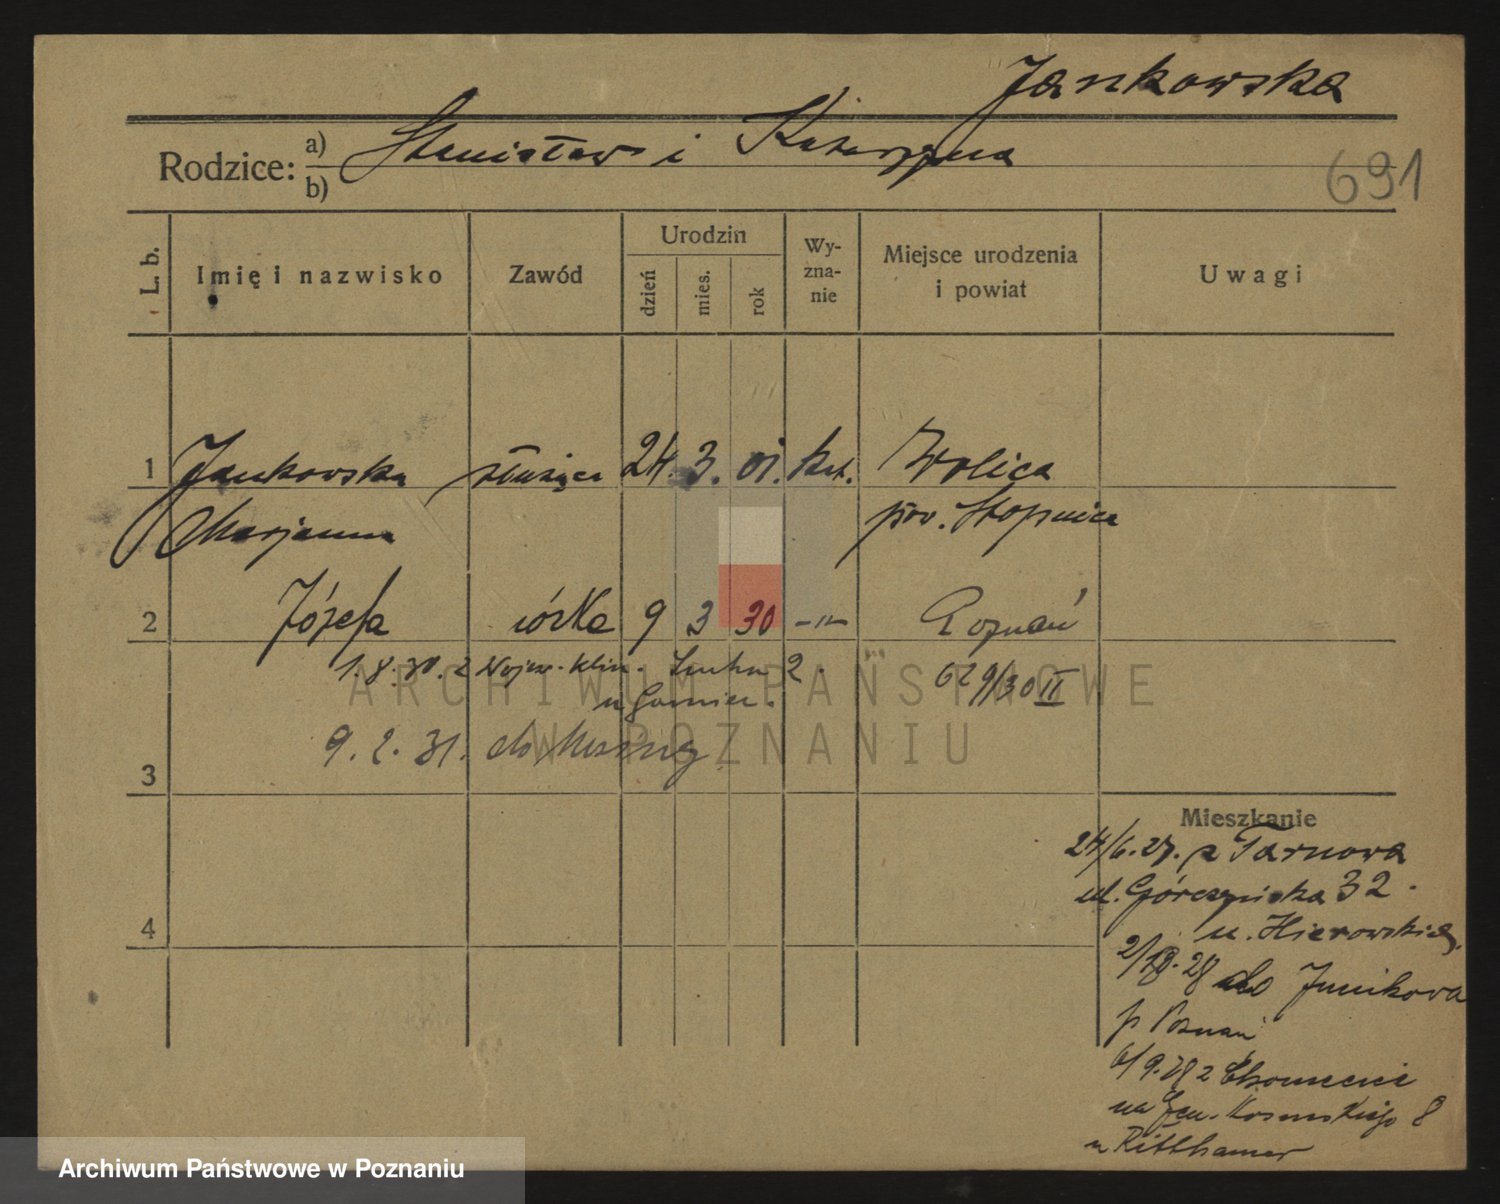 Jankowska
Rodzice: a) Stanisław i Katarzyna
b)
691
L. b.
Imię i nazwisko
Zawód
Urodzin
dzień
mies.
rok
Wy-
zna-
nie
Miejsce urodzenia
i powiat
Uwagi
1 Jankowska służąca 24. 3. 01. kat. Wolica
Marjanna pow. Stopnica
2 Józefa córka 9 3 30 -"- Poznań
1.8.30. z Wojew. klin. 2.
629/30 II
9.2.31. do
3
Mieszkanie
24/6.27. z Tarnowa
ul. Górczyńska 32.
4
u. Hierowskiej.
28 do Junikowa
p. Poznań
6/9.28 z Chomęcic
na Gen. Kosińskiego 8
u Ritthamer
ARCHIWUM PAŃSTWOWE
W POZNANIU
Archiwum Państwowe w Poznaniu